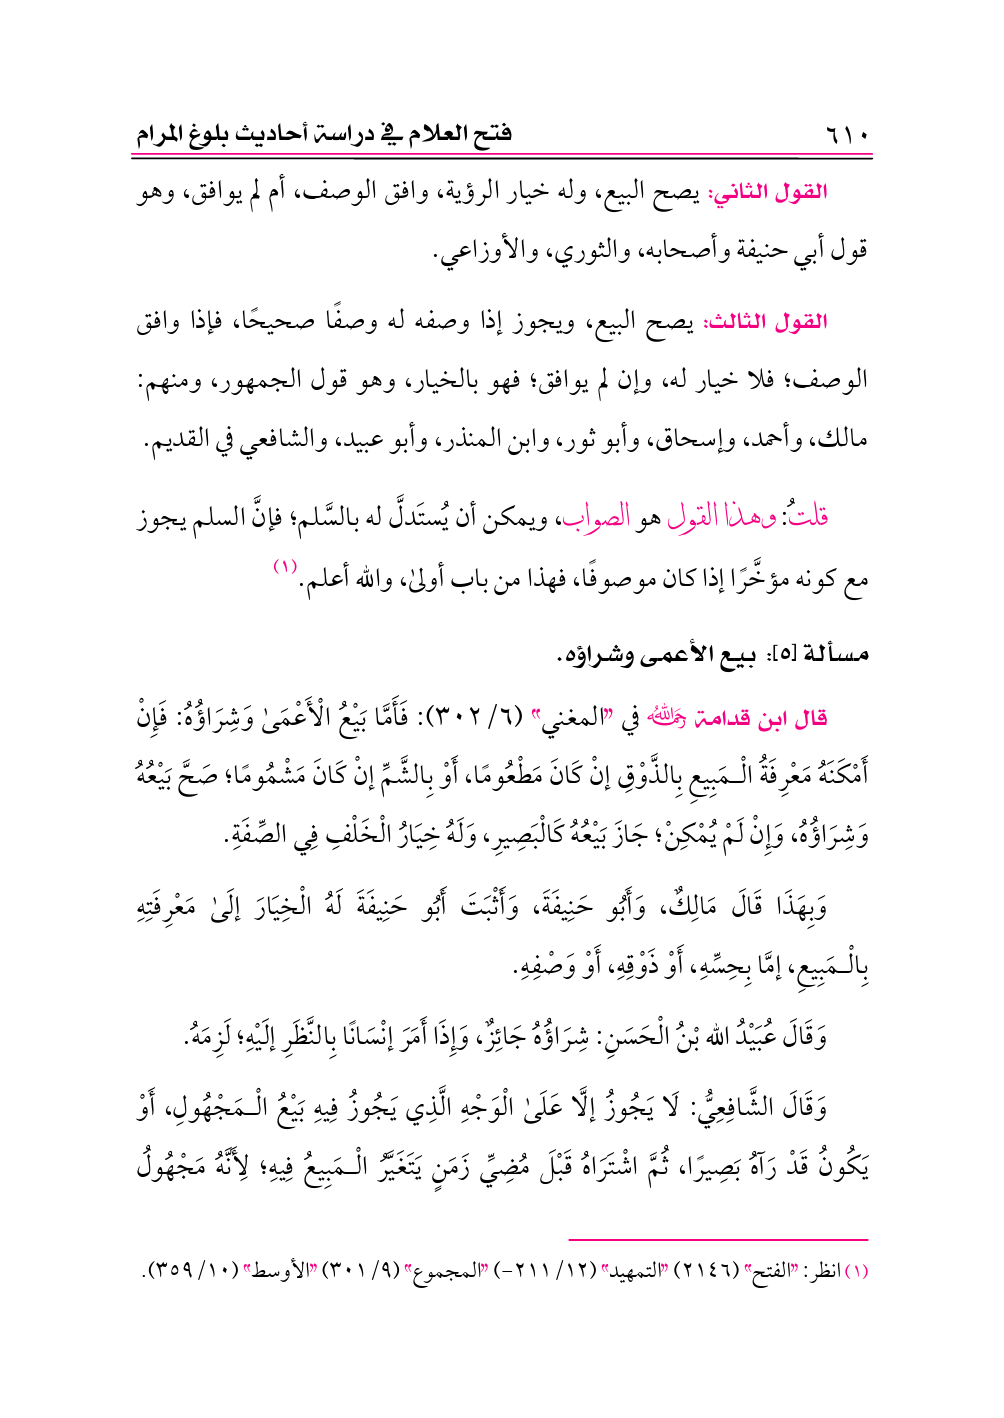 ٦١٠ فتح العلام في دراسة أحاديث بلوغ المرام
القول الثاني: يصح البيع، وله خيار الرؤية، وافق الوصف، أم لم يوافق، وهو
قول أبي حنيفة وأصحابه، والثوري، والأوزاعي.
القول الثالث: يصح البيع، ويجوز إذا وصفه له وصفًا صحيحًا، فإذا وافق
الوصف؛ فلا خيار له، وإن لم يوافق؛ فهو بالخيار، وهو قول الجمهور، ومنهم:
مالك، وأحمد، وإسحاق، وأبو ثور، وابن المنذر، وأبو عبيد، والشافعي في القديم.
قلتُ: وهذا القول هو الصواب، ويمكن أن يُستَدلَّ له بالسَّلم؛ فإنَّ السلم يجوز
مع كونه مؤخَّرًا إذا كان موصوفًا، فهذا من باب أولىٰ، والله أعلم.(١)
مسألة [٥]: بيع الأعمى وشراؤه.
قال ابن قدامة رحمه الله في "المغني" (٦/ ٣٠٢): فَأَمَّا بَيْعُ الْأَعْمَىٰ وَشِرَاؤُهُ: فَإِنْ
أَمْكَنَهُ مَعْرِفَةُ الْـمَبِيعِ بِالذَّوْقِ إنْ كَانَ مَطْعُومًا، أَوْ بِالشَّمِّ إنْ كَانَ مَشْمُومًا؛ صَحَّ بَيْعُهُ
وَشِرَاؤُهُ، وَإِنْ لَمْ يُمْكِنْ؛ جَازَ بَيْعُهُ كَالْبَصِيرِ، وَلَهُ خِيَارُ الْخَلْفِ فِي الصِّفَةِ.
وَبِهَذَا قَالَ مَالِكٌ، وَأَبُو حَنِيفَةَ، وَأَثْبَتَ أَبُو حَنِيفَةَ لَهُ الْخِيَارَ إلَىٰ مَعْرِفَتِهِ
بِالْـمَبِيعِ، إمَّا بِحِسِّهِ، أَوْ ذَوْقِهِ، أَوْ وَصْفِهِ.
وَقَالَ عُبَيْدُ الله بْنُ الْحَسَنِ: شِرَاؤُهُ جَائِزٌ، وَإِذَا أَمَرَ إنْسَانًا بِالنَّظَرِ إلَيْهِ؛ لَزِمَهُ.
وَقَالَ الشَّافِعِيُّ: لَا يَجُوزُ إلَّا عَلَىٰ الْوَجْهِ الَّذِي يَجُوزُ فِيهِ بَيْعُ الْـمَجْهُولِ، أَوْ
يَكُونُ قَدْ رَآهُ بَصِيرًا، ثُمَّ اشْتَرَاهُ قَبْلَ مُضِيِّ زَمَنٍ يَتَغَيَّرُ الْـمَبِيعُ فِيهِ؛ لِأَنَّهُ مَجْهُولُ
(١) انظر: "الفتح" (٢١٤٦) "التمهيد" (١٢/ ٢١١-) "المجموع" (٩/ ٣٠١) "الأوسط" (١٠/ ٣٥٩).